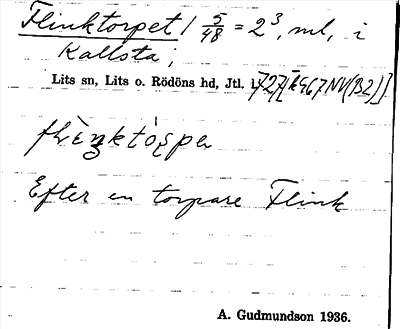 Flinktorpet 1 5/48 = 2³, ml, i
Kallsta;
Lits sn, Lits o. Rödöns hd, Jtl. l.
Efter en torpare Flink
A. Gudmundson 1936.